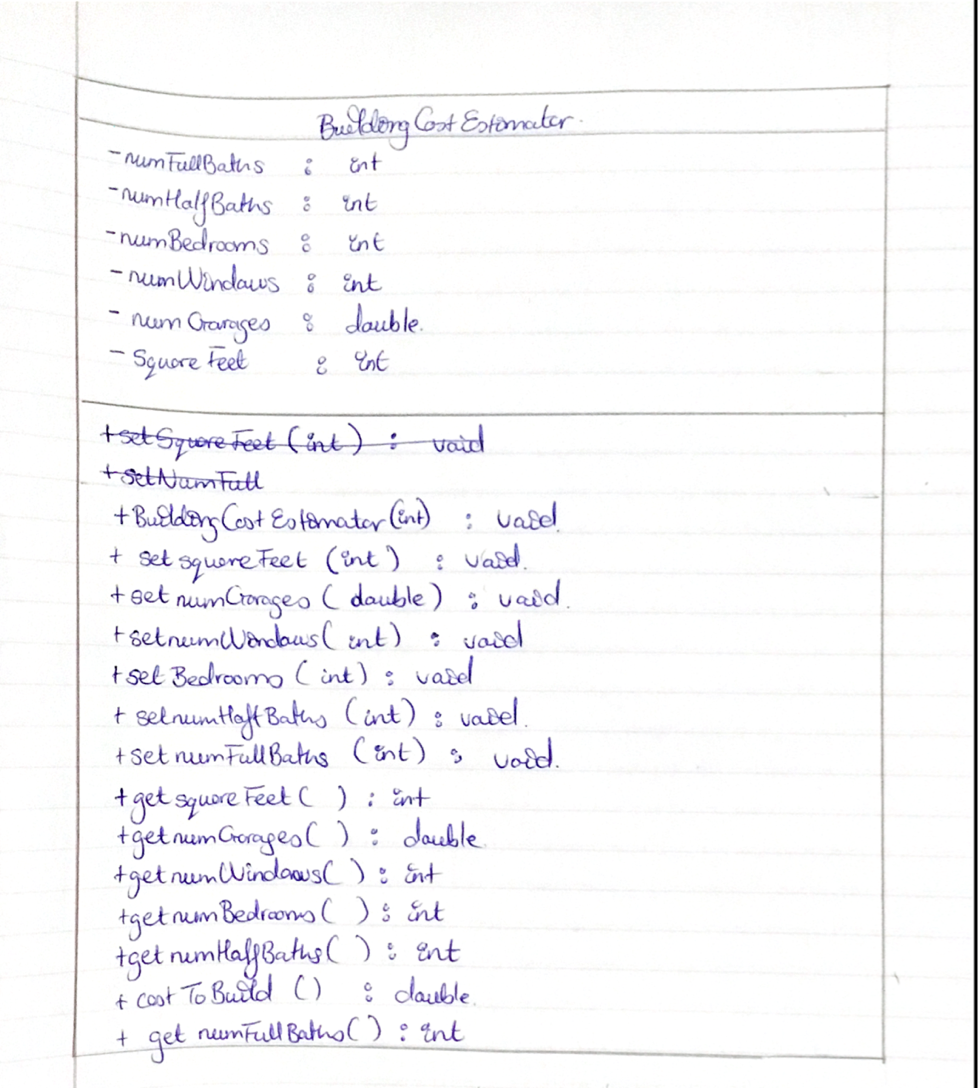 Building Cost Estimator.
- numFullBaths : int
- numHalfBaths : int
- numBedrooms : int
- numWindows : int
- num Garages : double.
- Square Feet : int
+ setSquareFeet (int) : void
+ setNumFull
+ BuildingCostEstimator (int) : void.
+ set squareFeet (int) : void.
+ set numGarages (double) : void.
+ setnumWindows (int) : void
+ set Bedrooms (int) : void
+ setnumHalfBaths (int) : void.
+ set numFullBaths (int) : void.
+ get squareFeet ( ) : int
+ getnumGarages ( ) : double.
+ getnumWindows ( ) : int
+ getnumBedrooms ( ) : int
+ get numHalfBaths ( ) : int
+ cost To Build () : double.
+ get numFullBaths ( ) : int